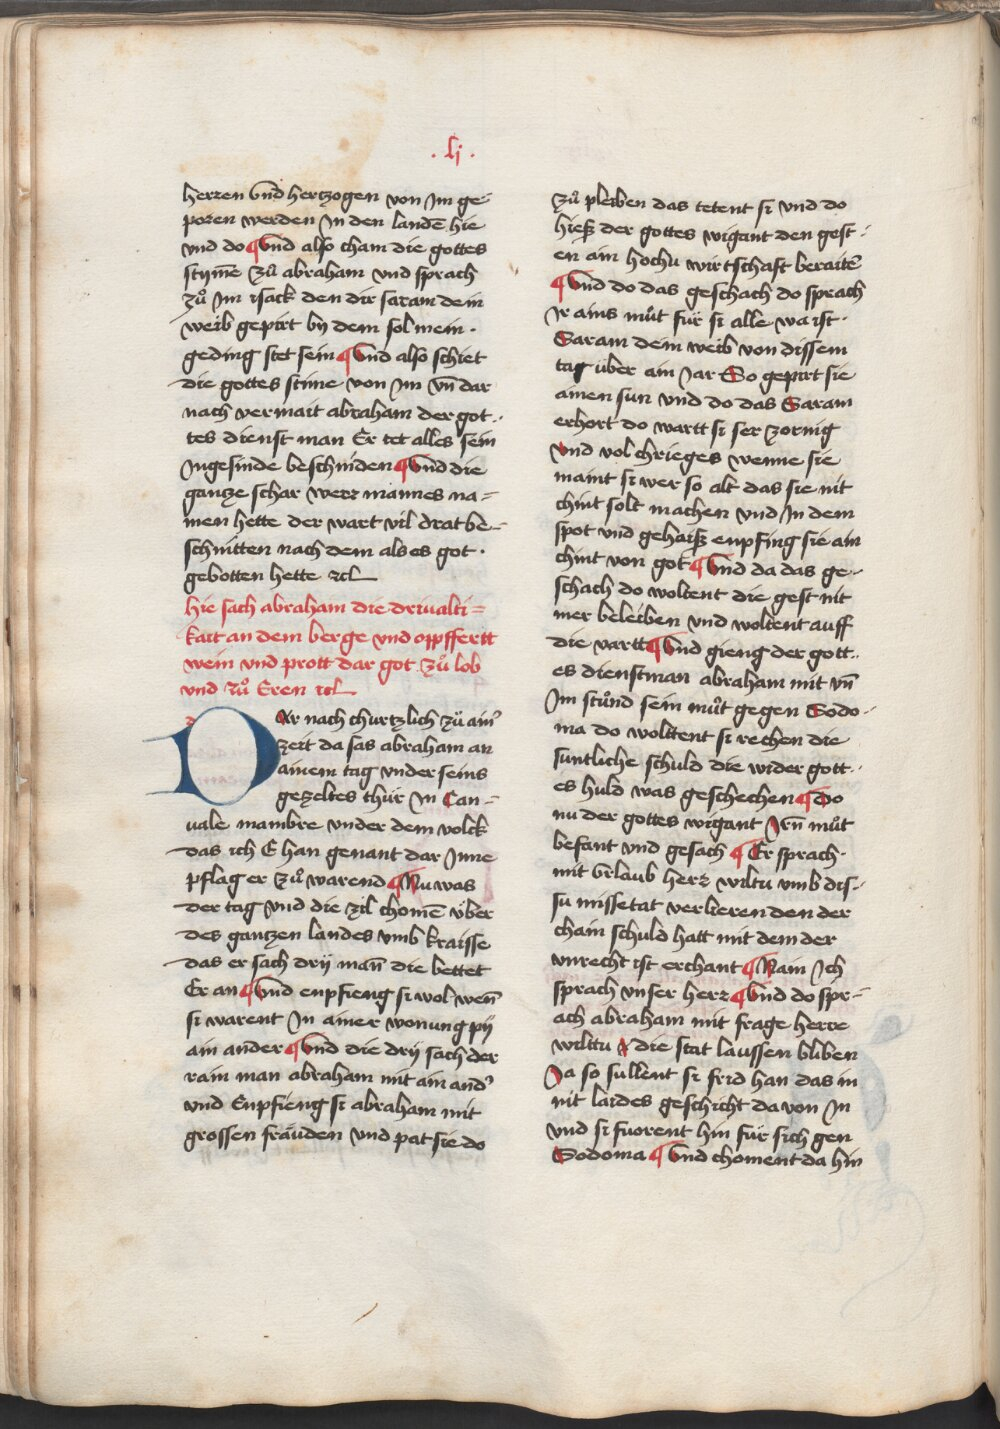 . lj .
herren vnd hertzogen von Jm ge-
poren werden Jn den landē hie
vnd do ¶ Vnd also cham die gottes
stym̄e zů abraham vnd sprach
zů Jm ysack den dir saram dein
weib gepirt by dem sol mein ·
geding stet sein ¶ Vnd also schiet
die gottes stime von Jm vn̄ dar
nach vermait abraham der got-
tes dienst man Er tet alles sein
Jngesinde beschniden ¶ Vnd die
gantze schar werz mannes na=
men hette der wart vil drat be-
schnitten nach dem als es got ·
gebotten hette rcl
hie sach abraham die driualti=
kait an dem berge vnd oppffertt
wein vnd prott dar got zů lob
vnd zů Eren rcl
DAr nach churtzlich zů aim̄
zeit da sas abraham an
ainem tag vnder seins
gezeltes thür Jn Can-
uale mambre vnder dem volck
das ich E han genant dar Jnne
pflag er zů warend ¶ Nu was
der tag vnd die zil chomē über
des gantzen landes vmb kraisse
das er sach drij man̄ die bettet
Er an ¶ Vnd enpfieng si wol wen̄
si warent Jn ainer wonung pÿ
ain ander ¶ Vnd die drij sach der
rain man abraham mit ain and̓
vnd Enpfieng si abraham mit
grossen fräuden vnd pat sie do
zů pleiben das tetent si vnd do
hieß der gottes wigant den gest-
en ain hochu wirtschaft beraitē
¶ Vnd do das geschach do sprach
Jr ains můt für si alle wa ist ·
Saram dem weib von dissem
tag über ain Jar So gepirt sie
ainen sun vnd do das Saram
erhort do wartt si ser zornig
Vnd vol chrieges wenne sie
maint si wer so alt das sie nit
chint solt machen vnd Jn dem
spot vnd gehaiß enpfing sie ain
chint von got ¶ Vnd da das ge-
schach do woltent die gest nit
mer beleiben vnd woltent auff
die vartt ¶ Vnd gieng der gott-
es dienstman abraham mit vn̄
Jm stůnd sein můt gegen Sodo-
ma do wolttent si rechen die
suntliche schuld die wider gott-
es huld was geschechen ¶ Do
nu der gottes wigant Jrn̄ můt
befant vnd gesach ¶ Er sprach ·
mit Vrlaub herz wiltu vmb dis-
su missetat verlieren den der
chain schuld hatt mit dem der
vnrecht ist erchant ¶ Nain Jch
sprach vnser herz ¶ Vnd do spr-
ach abraham mit frage herre
wilttu die stat laussen bliben
Ja so sullent si frid han das in
nit laides geschicht da von Jn
vnd si fuorent hin für sich gen
Sodoma ¶ Vnd choment da hin